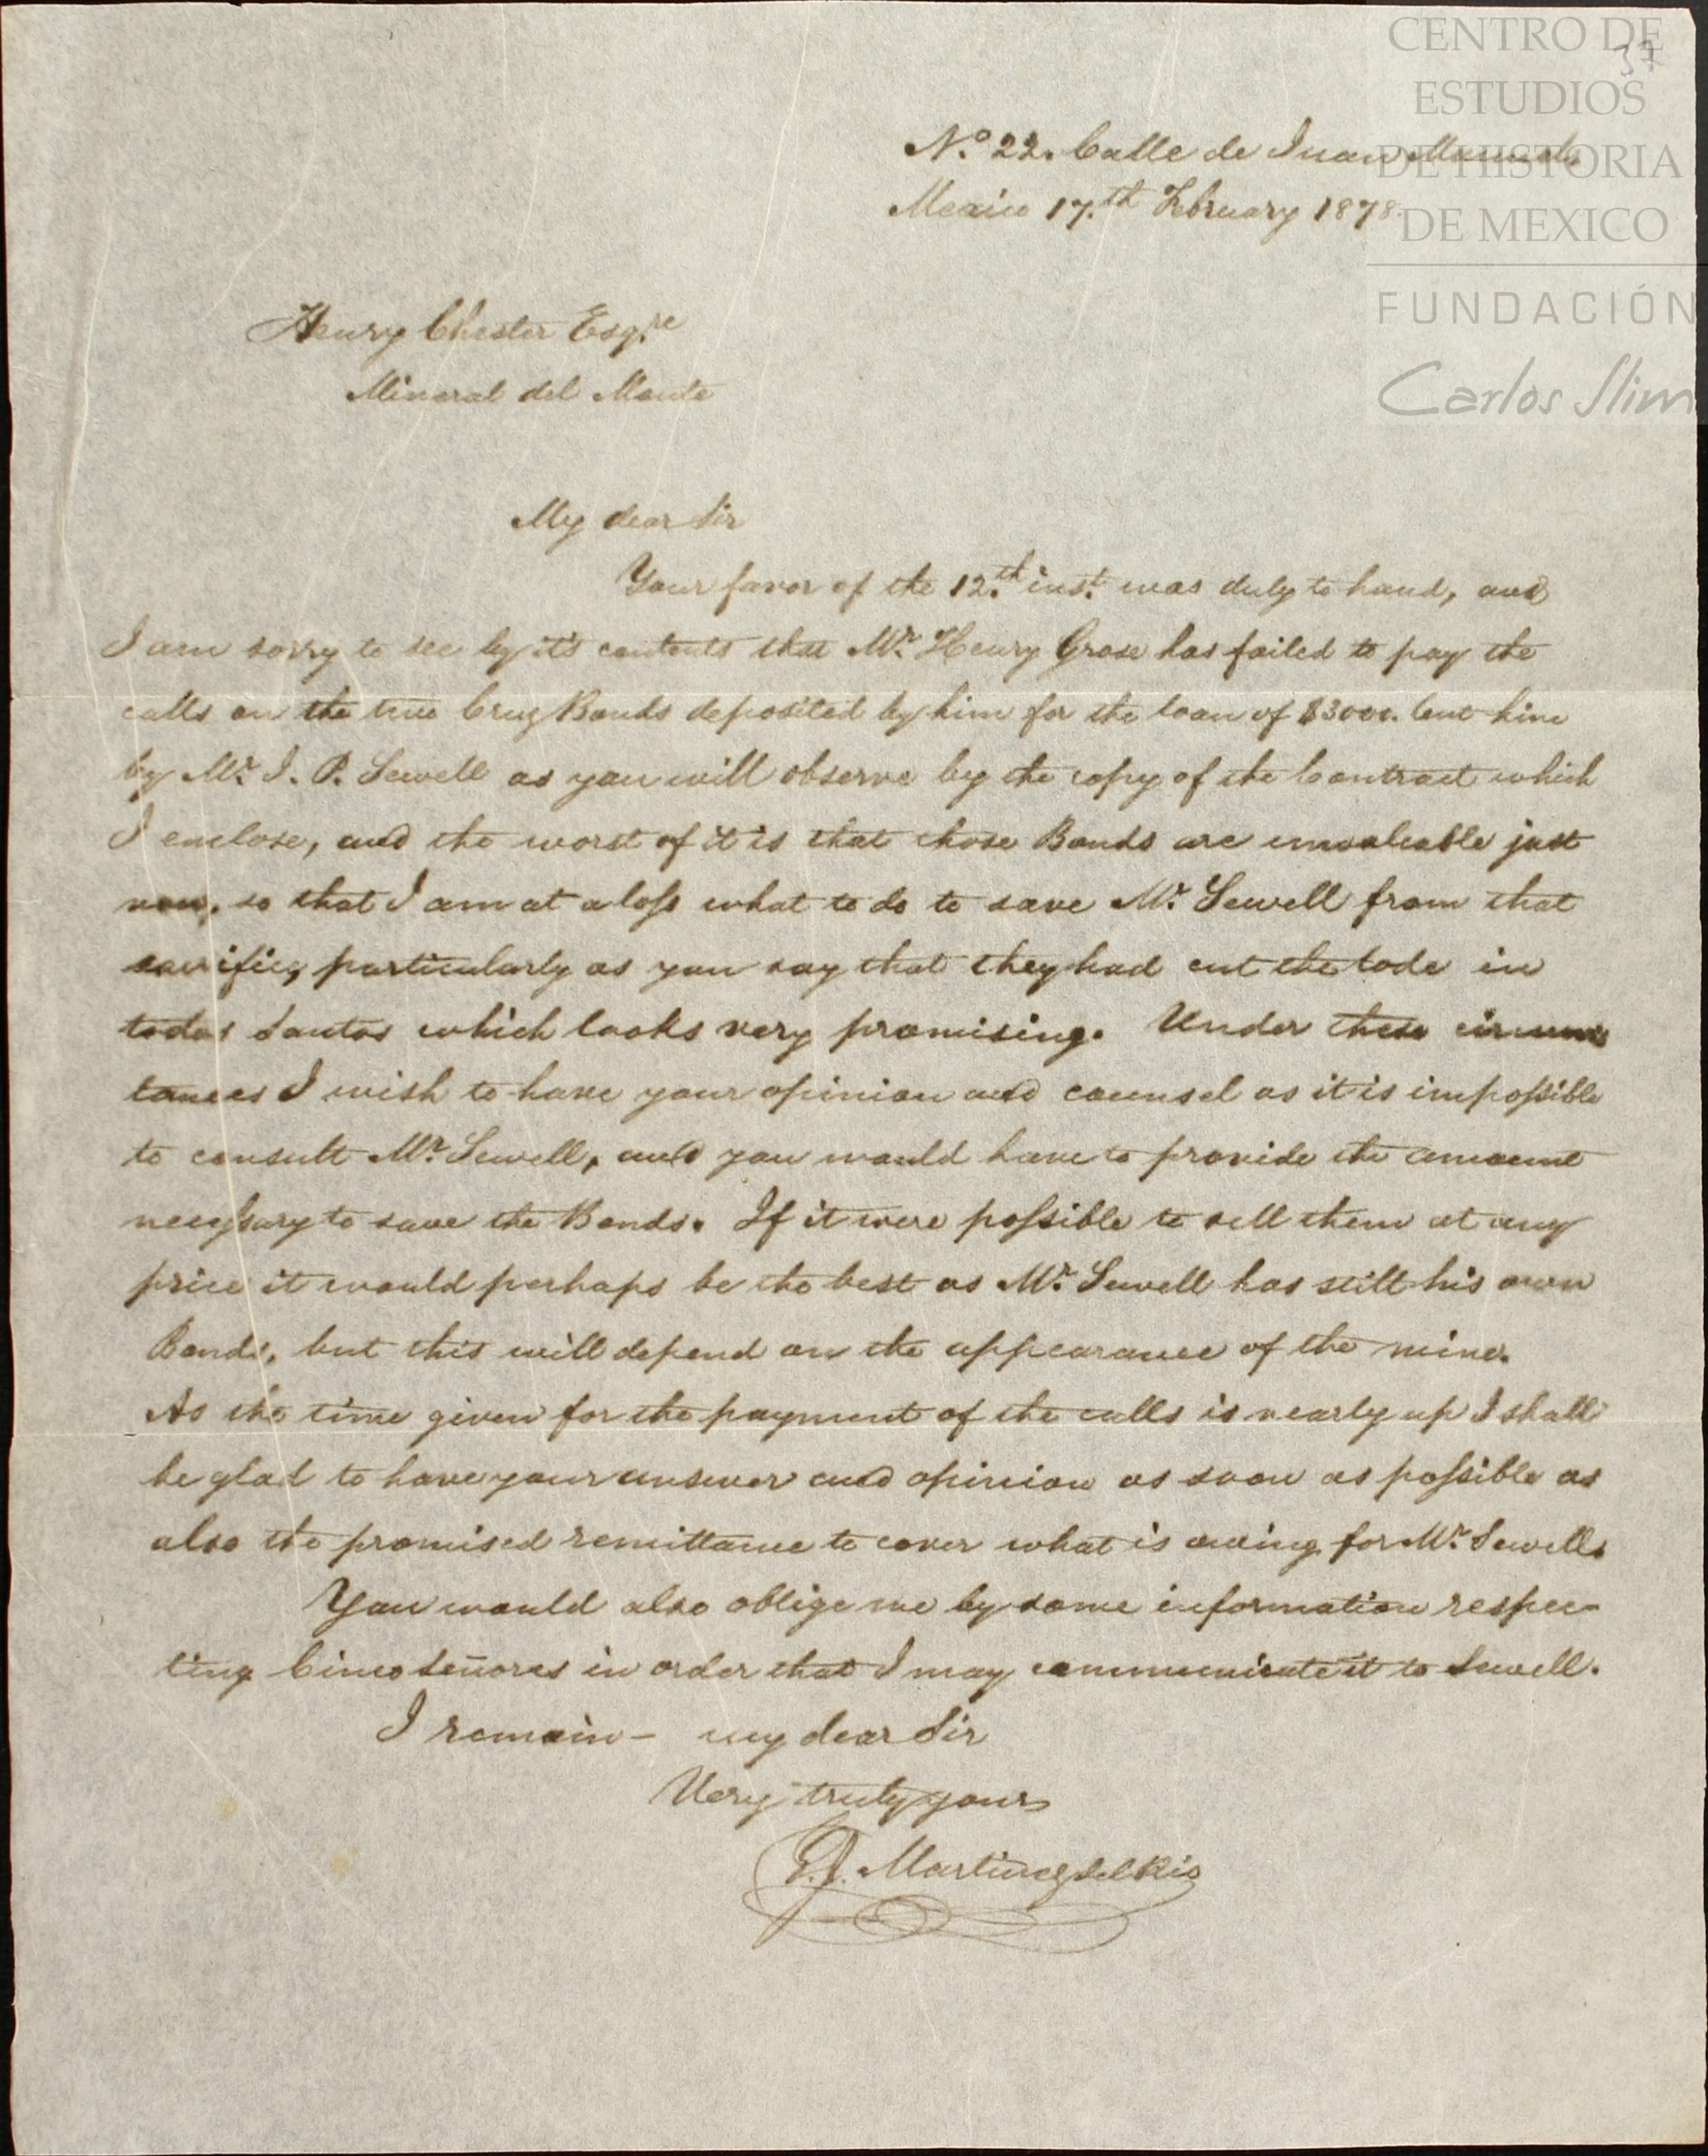 CENTRO DE
ESTUDIOS
DE HISTORIA
DE MEXICO
FUNDACIÓN
Carlos Slim
37
N.º 22. Calle de Juan Manuel
Mexico 17.th February 1878.
Henry Chester Esq.re
Mineral del Monte
My dear Sir
Your favor of the 12.th inst. was duly to hand, and
I am sorry to see by it's contents that Mr. Henry Grose has failed to pay the
calls on the two Cruz Bonds deposited by him for the loan of $3000. lent him
by Mr. J. P. Sewell as you will observe by the copy of the Contract which
I enclose, and the worst of it is that those Bonds are unvaleable just
now, so that I am at a loss what to do to save Mr. Sewell from that
sacrifice, particularly as you say that they had cut the lode in
todos Santos which looks very promising. Under these circums
tances I wish to have your opinion and counsel as it is impossible
to consult Mr. Sewell, and you would have to provide the amount
necessary to save the Bonds. If it were possible to sell them at any
price it would perhaps be the best as Mr. Sewell has still his own
Bonds, but this will depend on the appearance of the mine.
As the time given for the payment of the calls is nearly up I shall
be glad to have your answer and opinion as soon as possible as
also the promised remittance to cover what is owing for Mr. Sewell.
You would also oblige me by some information respec-
ting Cinco Señores in order that I may communicate it to Sewell.
I remain - my dear Sir
Very truly yours
Martinez del Rio